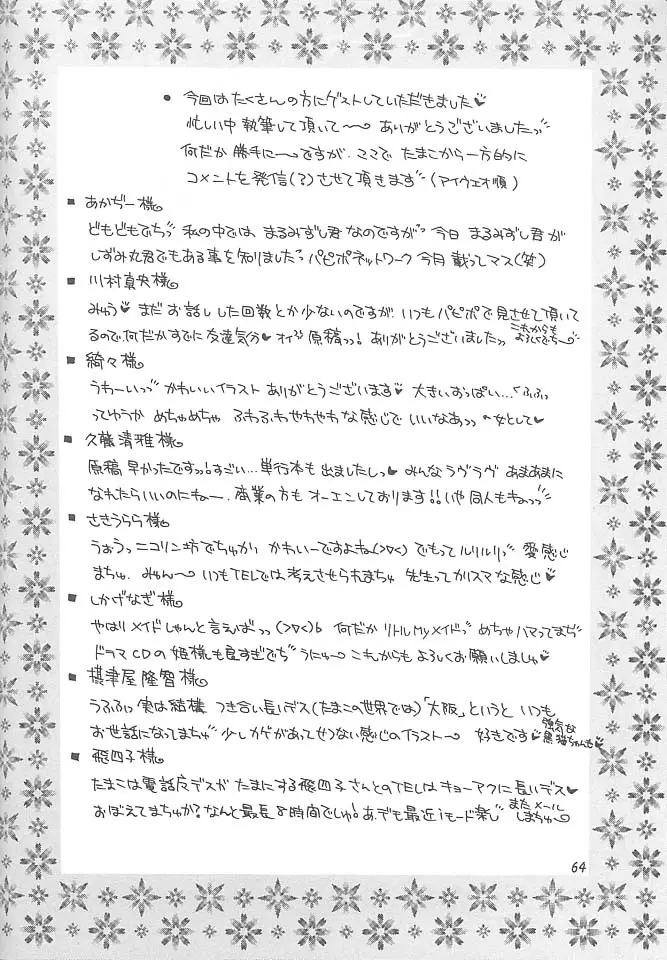 ● 今回はたくさんの方にゲストしていただきました♥
忙しい中 執筆して頂いて〜 ありがとうございましたっ
何だか 勝手に〜ですが、ココで たまこから一方的に
コメントを発信(?)させて頂きます (アイウェオ順)
■ あかぢー様
どもどもでちっ 私の中では、まるみずし君 なのですが 今日 まるみずし君が
しずみ丸君でもある事を知りました パピポネットワーク 今月 載ってマス(笑)
■ 川村真央様
みゅう♥ まだ お話し した回数とか少ないのですが、いつも パピポで 見させて頂いて
るので、何だかすでに 友達気分♥ 原稿っ! ありがとうございましたっ これからも よろしくでち〜
■ 綺々様
うわーいっっ かわいいイラスト ありがとうございます♥ 大きいおっぱい…くふふっ
ってゆうか めちゃめちゃ ふわふわやわやわな感じで いいなあっっ 女として♥
■ 久藤清雅様
原稿 早かったですっっ!すごい…単行本も出ましたしっ♥ みんなラヴラヴ あまあまに
なれたらいいのにキュー、商業の方も オーエンしております!!いや 同人もキュっっ
■ ささうらら様
うぉうっ ニコリン坊でちゅかっ かわいーですよね(>▽<) でもって ルリルリっ 愛感じ
まちゅ、みゅん〜 いつもTELでは 考えさせられまちゅ 先生ってカリスマな感じ♥
■ しかげなぎ様
やはり メイドしゃんと言えばっっ (>▽<)b 何だか リトルMyメイドっ めちゃハマってまぢ
ドラマCDの姫様も良すぎでち うにゅ〜 これからも よろしくお願いしましゅ♥
■ 摂津屋隆智様
うふふっっ 実は結構、つき合い長いデス(たまこの世界では)「大阪」というと いつも
お世話になってまちゅ 少しカゲがあってせつない感じのイラスト〜 好きです♥ 強気な 黒猫ちゃんも♥
■ 飛四子様
たまこは電話友デスが たまにする飛四子さんとのTELはキョーアクに長いデス♥
おぼえてまちゅか?なんと最長8時間でしゅ!あ、でも最近iモード楽し また メール しまちゅ〜
64